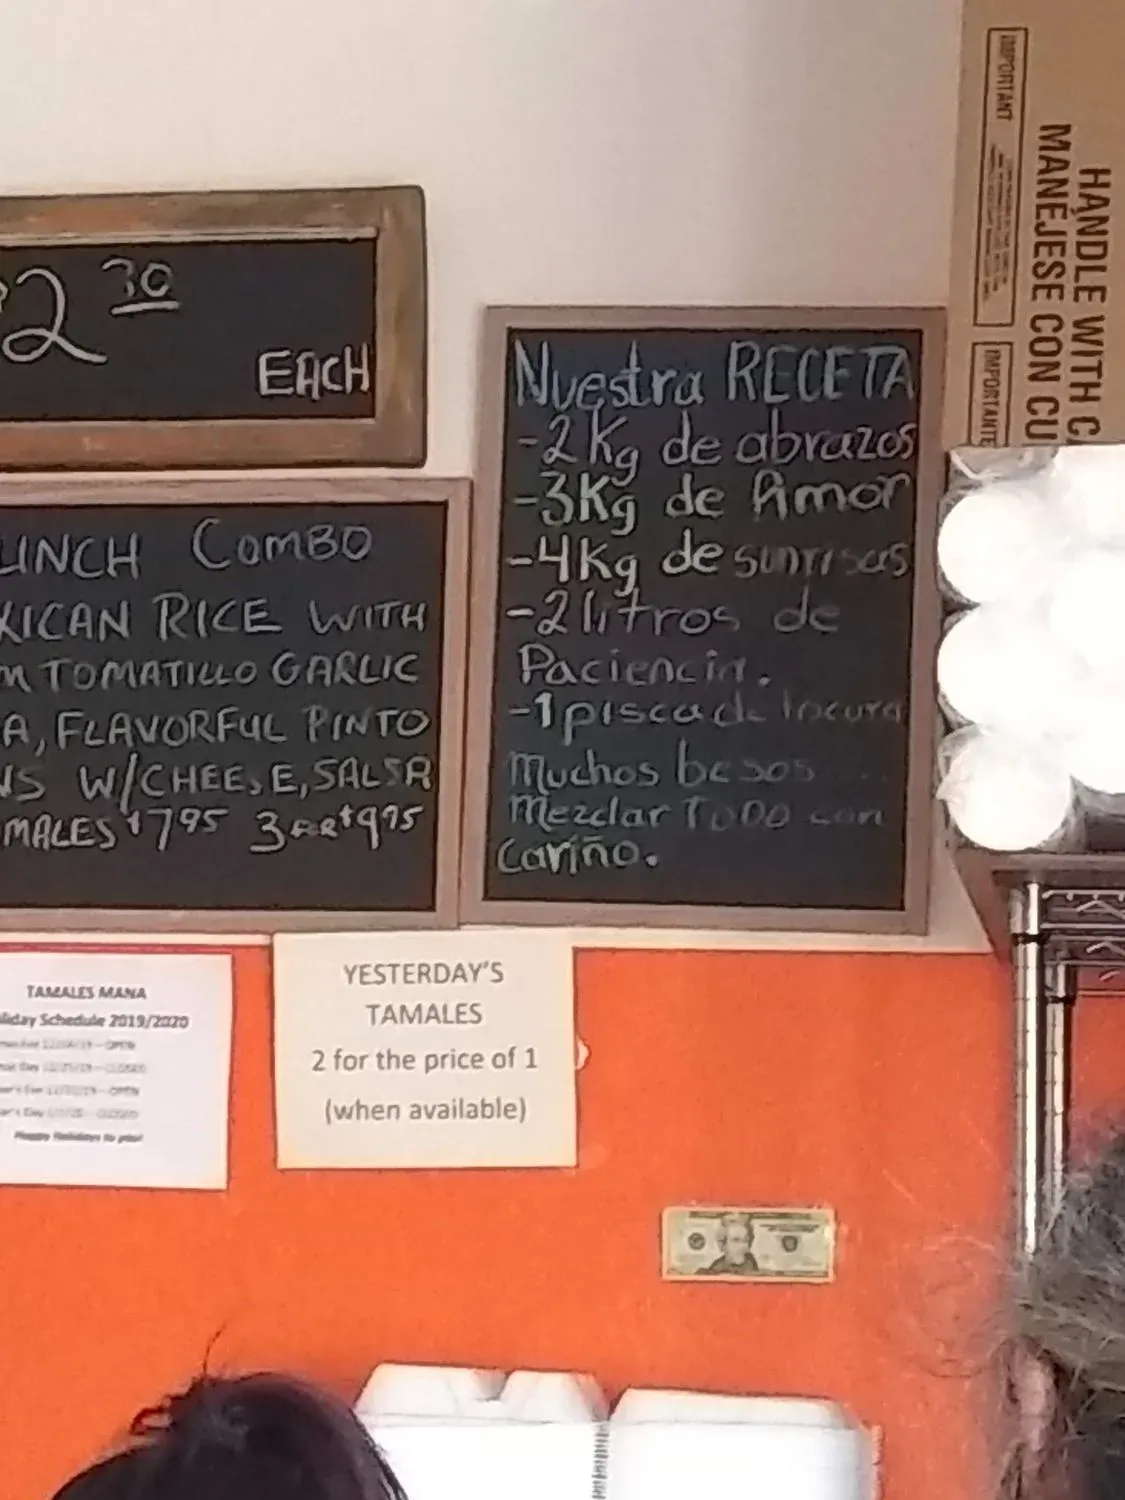 2 30
EACH
LUNCH COMBO
XICAN RICE WITH
M TOMATILLO GARLIC
A, FLAVORFUL PINTO
NS W/CHEESE, SALSA
MALES $7.95 3 FOR $9.95
Nuestra RECETA
-2Kg de abrazos
-3Kg de Amor
-4Kg de sonrisas
-2 litros de
Paciencia.
-1 pisca de locura
Muchos besos ...
Mezclar TODO con
Cariño.
IMPORTANT
HANDLE WITH CA
MANÉJESE CON CU
IMPORTANTE
TAMALES MANA
liday Schedule 2019/2020
Happy Holidays to you!
YESTERDAY'S
TAMALES
2 for the price of 1
(when available)